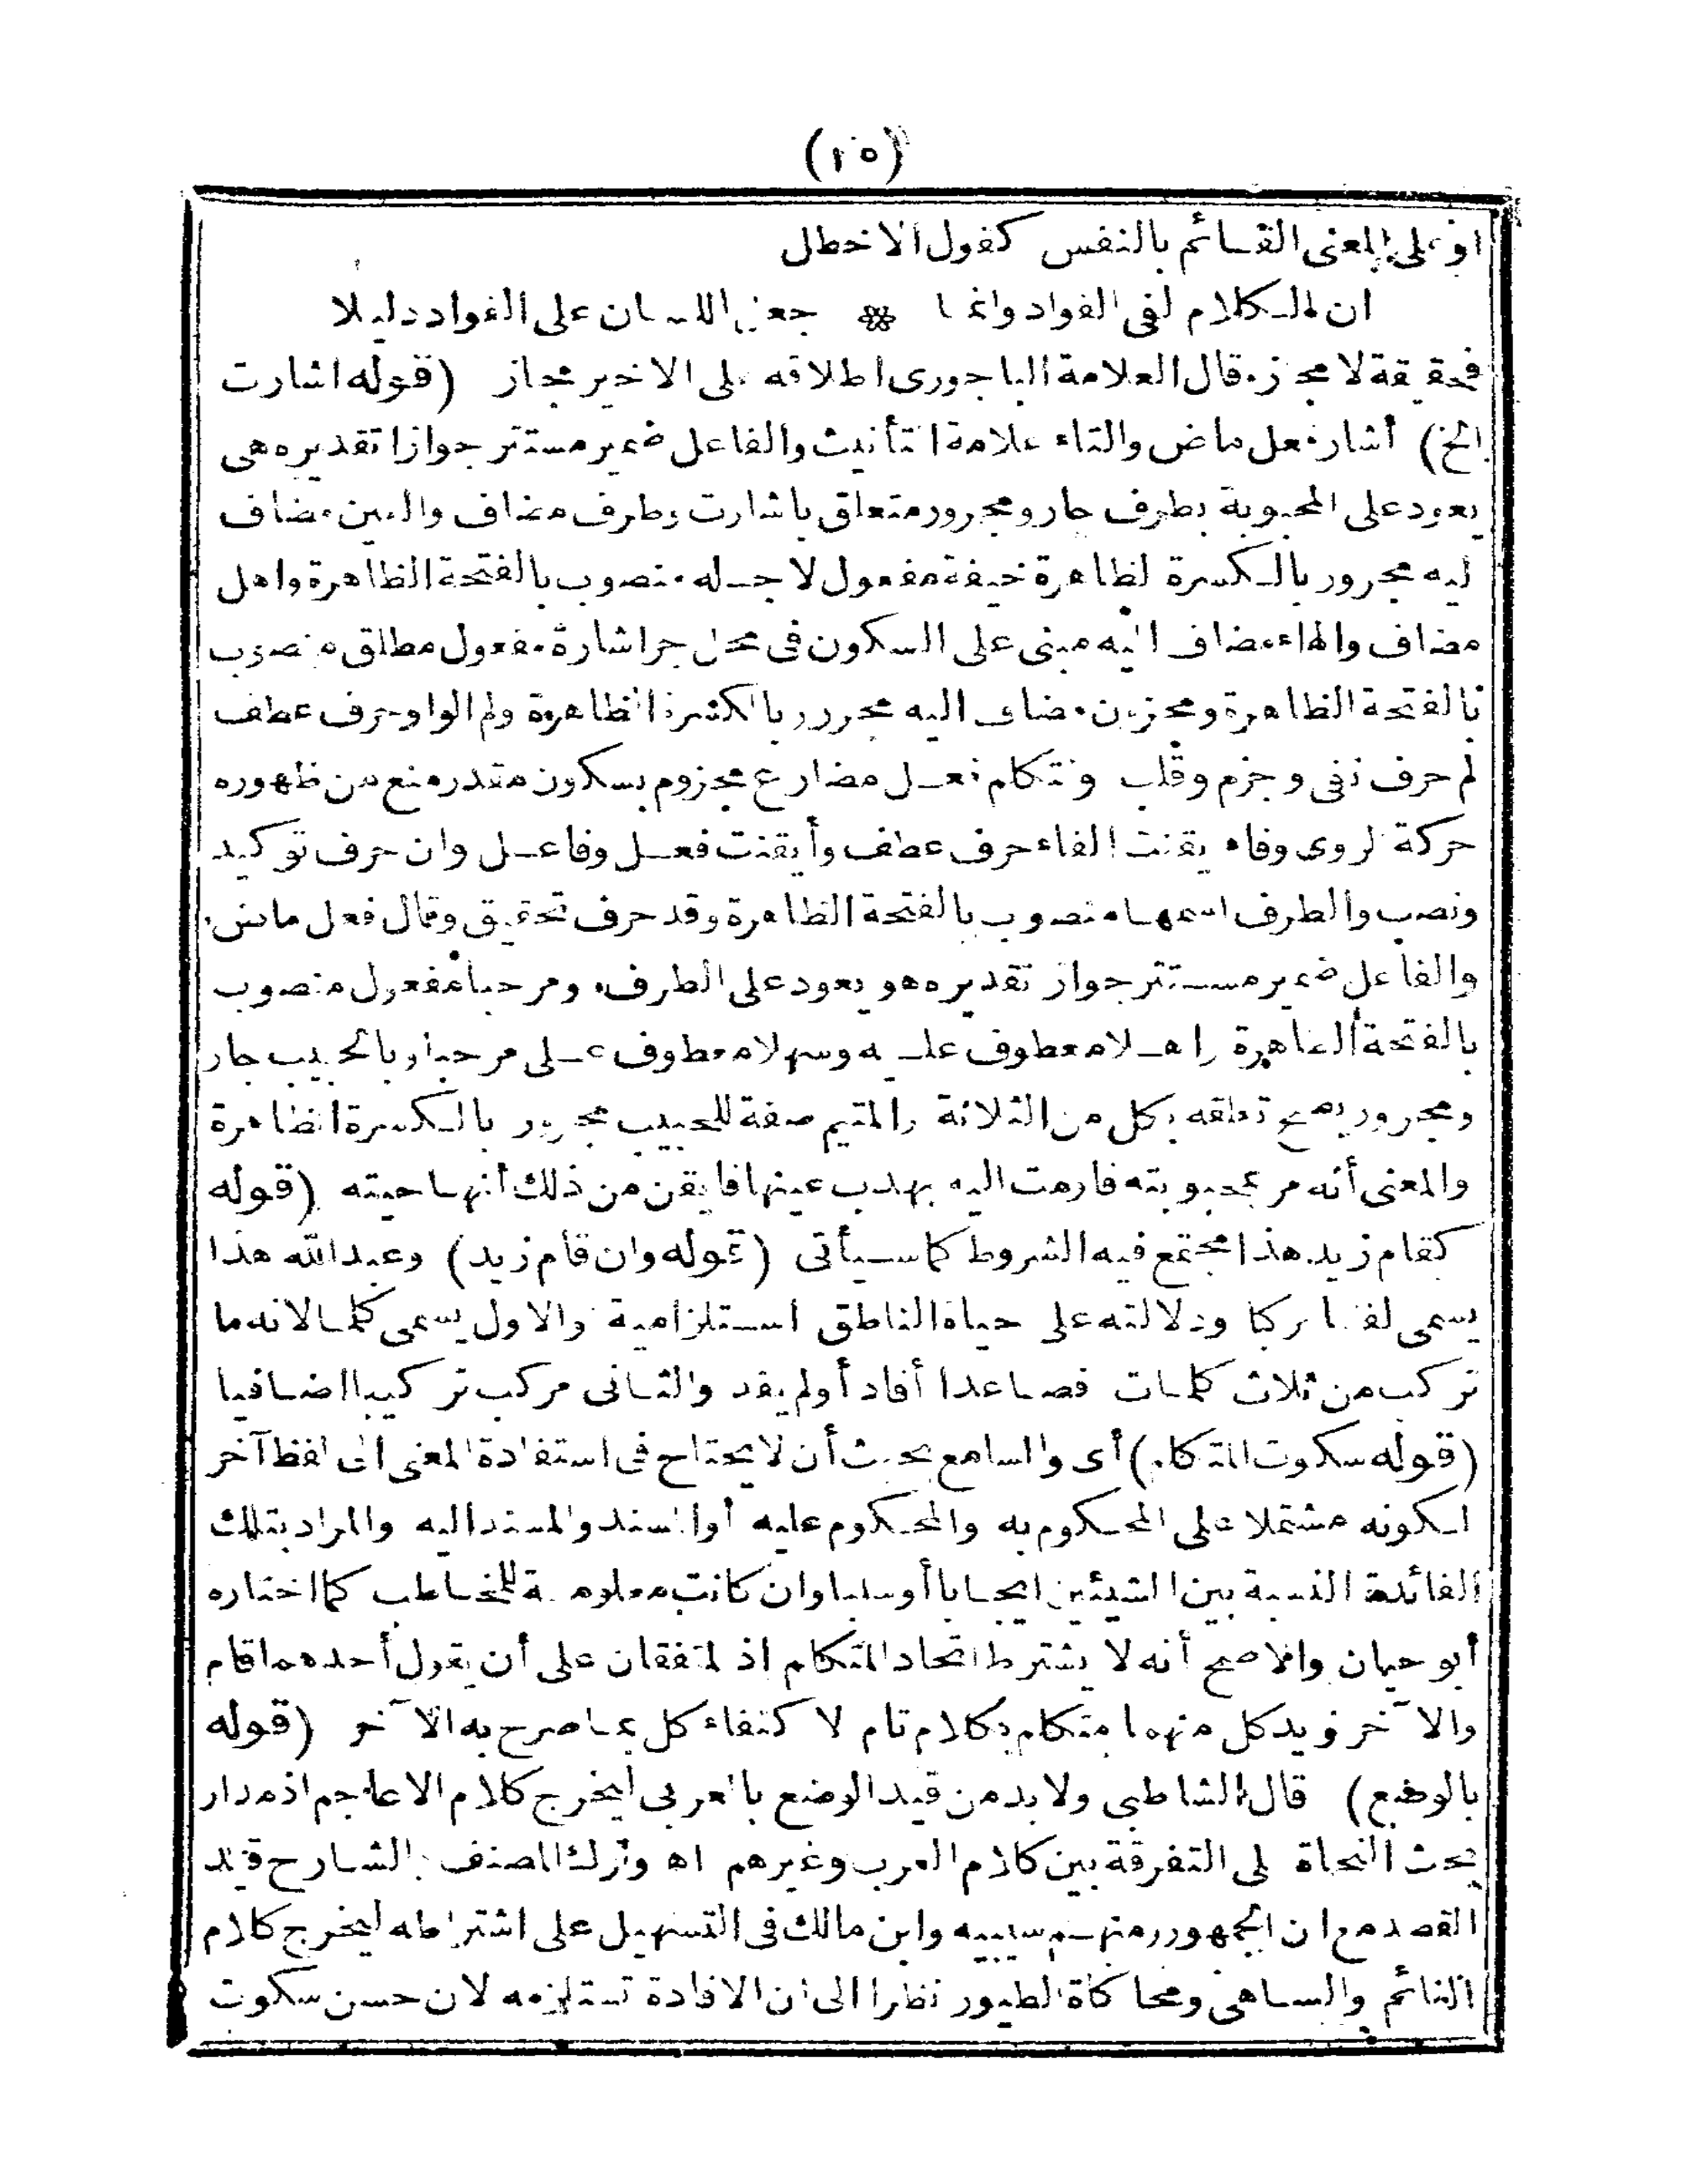 (١٥)
او على المعنى القائم بالنفس كقول الاخطل
ان الكلام لفى الفواد وانما ❊ جعل اللسان على الفواد دليلا
فحقيقة لا مجاز. قال العلامة الباجورى اطلاقه على الاخير مجاز (قوله اشارت
الخ) أشار فعل ماض والتاء علامة التأنيث والفاعل ضمير مستتر جوازا تقديره هى
يعود على المحبوبة بطرف جار ومجرور متعلق باشارت وطرف مضاف والعين مضاف
ليه مجرور بالكسرة لظاهرة خيفة مفعول لاجله منصوب بالفتحة الظاهرة واهل
مضاف والهاء مضاف اليه مبنى على السكون فى محل جر اشارة مفعول مطلق منصوب
بالفتحة الظاهرة ومحزون مضاف اليه مجرور بالكسرة الظاهرة ولم الواو حرف عطف
لم حرف نفى وجزم وقلب وتتكلم فعل مضارع مجزوم بسكون مقدر منع من ظهوره
حركة لروى وفاء يقنت الفاء حرف عطف وأيقنت فعل وفاعل وان حرف توكيد
ونصب والطرف اسمها منصوب بالفتحة الظاهرة وقد حرف تحقيق وقال فعل ماض
والفاعل ضمير مستتر جواز تقديره هو يعود على الطرف ومرحبا مفعول منصوب
بالفتحة الظاهرة واهلا معطوف عليه وسهلا معطوف على مرحبا وبالحبيب جار
ومجرور يصح تعلقه بكل من الثلاثة والمتيم صفة للحبيب مجرور بالكسرة الظاهرة
والمعنى أنه مر بمحبوبته فارمت اليه بهدب عينها فايقن من ذلك أنها حيته (قوله
كقام زيد هذا مجتمع فيه الشروط كما سيأتى (قوله وان قام زيد) وعبدالله هذا
يسمى لفظا مركبا ودلالته على حياة الناطق استلزامية والاول يسمى كلما لانه ما
تركب من ثلاث كلمات فصاعدا أفاد أولم يفد والثانى مركب تركيبا اضافيا
(قوله سكوت المتكلم) أى والسامع بحيث أن لا يحتاج فى استفادة المعنى الى لفظ آخر
لكونه مشتملا على المحكوم به والمحكوم عليه أو المسند والمسند اليه والمراد بتلك
الفائدة النسبة بين الشيئين ايجابا أو سلبا وان كانت معلومة للمخاطب كما اختاره
أبو حيان والاصح أنه لا يشترط اتحاد المتكلم اذ لمتفقان على أن يقول أحدهما قام
والآخر زيد كل منهما متكلم بكلام تام لا كتفاء كل بما صرح به الآخر (قوله
بالوضع) قال الشاطبى ولا بد من قيد الوضع بالعربى ليخرج كلام الاعاجم اذ مدار
بحث النحاة لى التفرقة بين كلام العرب وغيرهم اه وترك المصنف والشارح قيد
القصد مع ان الجمهور ومنهم سيبيه وابن مالك فى التسهيل على اشتراطه ليخرج كلام
النائم والساهى ومحاكاة الطيور نظرا الى ان الافادة تستلزمه لان حسن سكوت